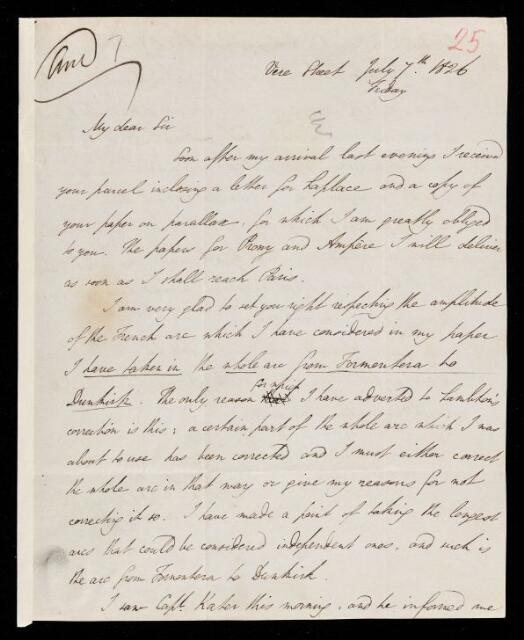 25
Ansd
Vere Street July 7th. 1826
Friday
My dear Sir
Soon after my arrival last evening I received
your parcel inclosing a letter for Laplace and a copy of
your paper on parallax, for which I am greatly obliged
to you. The papers for Prony and Ampère I will deliver
as soon as I shall reach Paris.
I am very glad to set you right respecting the amplitude
of the French arc which I have considered in my paper
I have taken in the whole arc from Formentera to
Dunkirk. The only reason for which I have adverted to Lambton's
correction is this; a certain part of the whole arc which I was
about to use has been corrected and I must either correct
the whole arc in that way or give my reasons for not
correcting it so. I have made a point of taking the longest
arcs that could be considered independent ones, and such is
the arc from Formentera to Dunkirk.
I saw Capt. Kater this morning, and he informed me